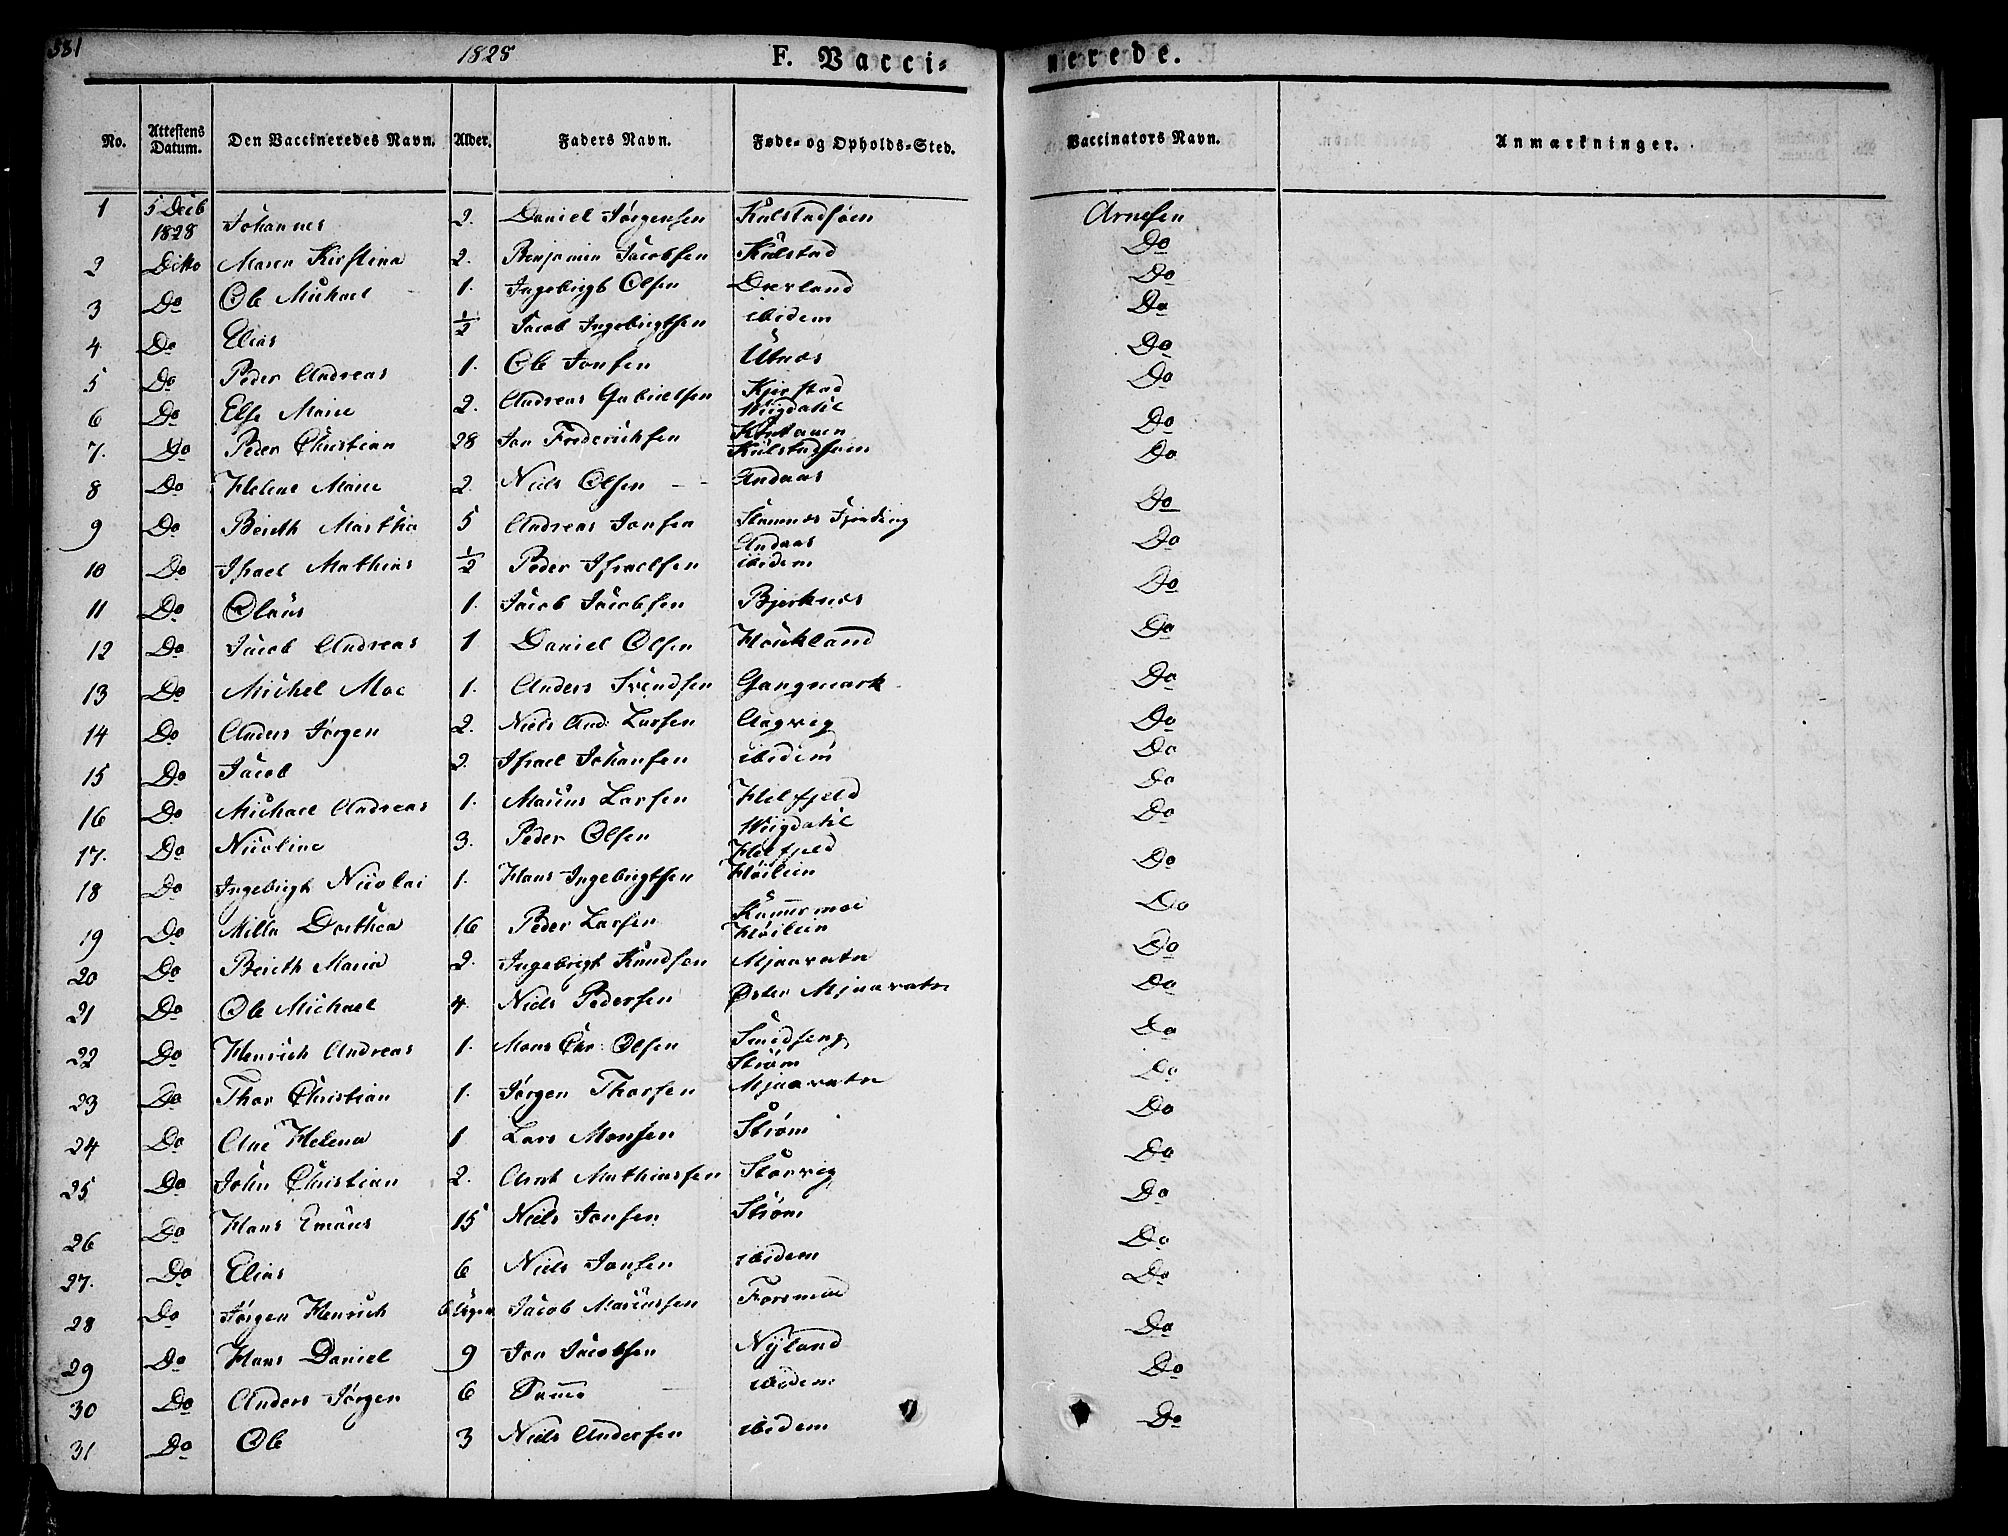 331
1828
F. Vaccinerede.
No. Attestens Datum. Den Vaccineredes Navn. Alder. Faders Navn. Føde- og Opholds-Sted. Vaccinators Navn. Anmærkninger.
1 5 Decb 1828 Johannes 2. Daniel Jørgensen Kulstadsøen Arnesen
2 Ditto Maren Kirstina 2. Benjamin Jacobsen Kulstad Do
3 Do Ole Michael 1. Ingebrigt Olsen Drevland Do
4 Do Elias 1/2 Jacob Ingebrigtsen ibidem Do
5 Do Peder Andreas 1. Ole Jonsen Utnes Do
6 Do Else Marie 2. Andreas Gabrielsen Kjerstad Do
7. Do Peder Christian 28 Jon Frederichsen Kulstadsøen Do
8 Do Helene Marie 2. Niels Olsen Andaas Do
9 Do Berith Martha 5 Andreas Jonsen Stamnes Fjerding Andaas Do
10 Do Israel Mathias 1/2 Peder Israelsen ibidem Do
11 Do Olaus 1. Jacob Jacobsen Bjerknes Do
12 Do Jacob Andreas 1 Daniel Olsen Houkland Do
13 Do Michel Moe 1. Anders Svendsen Gangmark Do
14 Do Anders Jørgen 2. Niels And: Larsen Aagvig Do
15 Do Jacob 2. Israel Johansen ibidem Do
16 Do Michael Andreas 1. Mauns Larsen Helfjeld Do
17. Do Nicoline 3. Peder Olsen Helfjeld Do
18 Do Ingebrigt Nicolai 1. Hans Ingebrigtsen Høilien Do
19 Do Milla Dorthea 16 Peder Larsen Kummermoe Høilien Do
20 Do Berith Maria 2. Ingebrigt Knudsen Mjaavatn Do
21 Do Ole Michael 4. Niels Pedersen Øster Mjaavatn Do
22 Do Henrich Andreas 1. Mons Chr: Olsen Smedseng Strøm Do
23 Do Thor Christian 1. Jørgen Thorsen Mjaavatn Do
24 Do Ane Helena 1 Lars Monsen Strøm Do
25 Do John Christian 2. Arnt Mathiassen Storvig Do
26 Do Hans Emaus 15 Niels Jonsen Strøm Do
27. Do Elias 6 Niels Jonsen ibidem Do
28 Do Jørgen Henrich 6 Uger Jacob Mariussen Forsmoe Do
29 Do Hans Daniel 9 Jon Jacobsen Nyland Do
30 Do Anders Jørgen 6 Samme ibidem Do
31 Do Ole 3 Niels Andersen ibidem Do